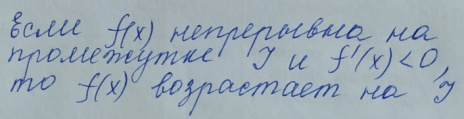 Если f(x) непрерывна на
промежутке I и f'(x)<0,
то f(x) возрастает на I